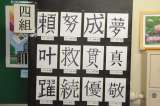 四組
頼 努 成 夢
叶 救 貫 真
躍 続 優 敬